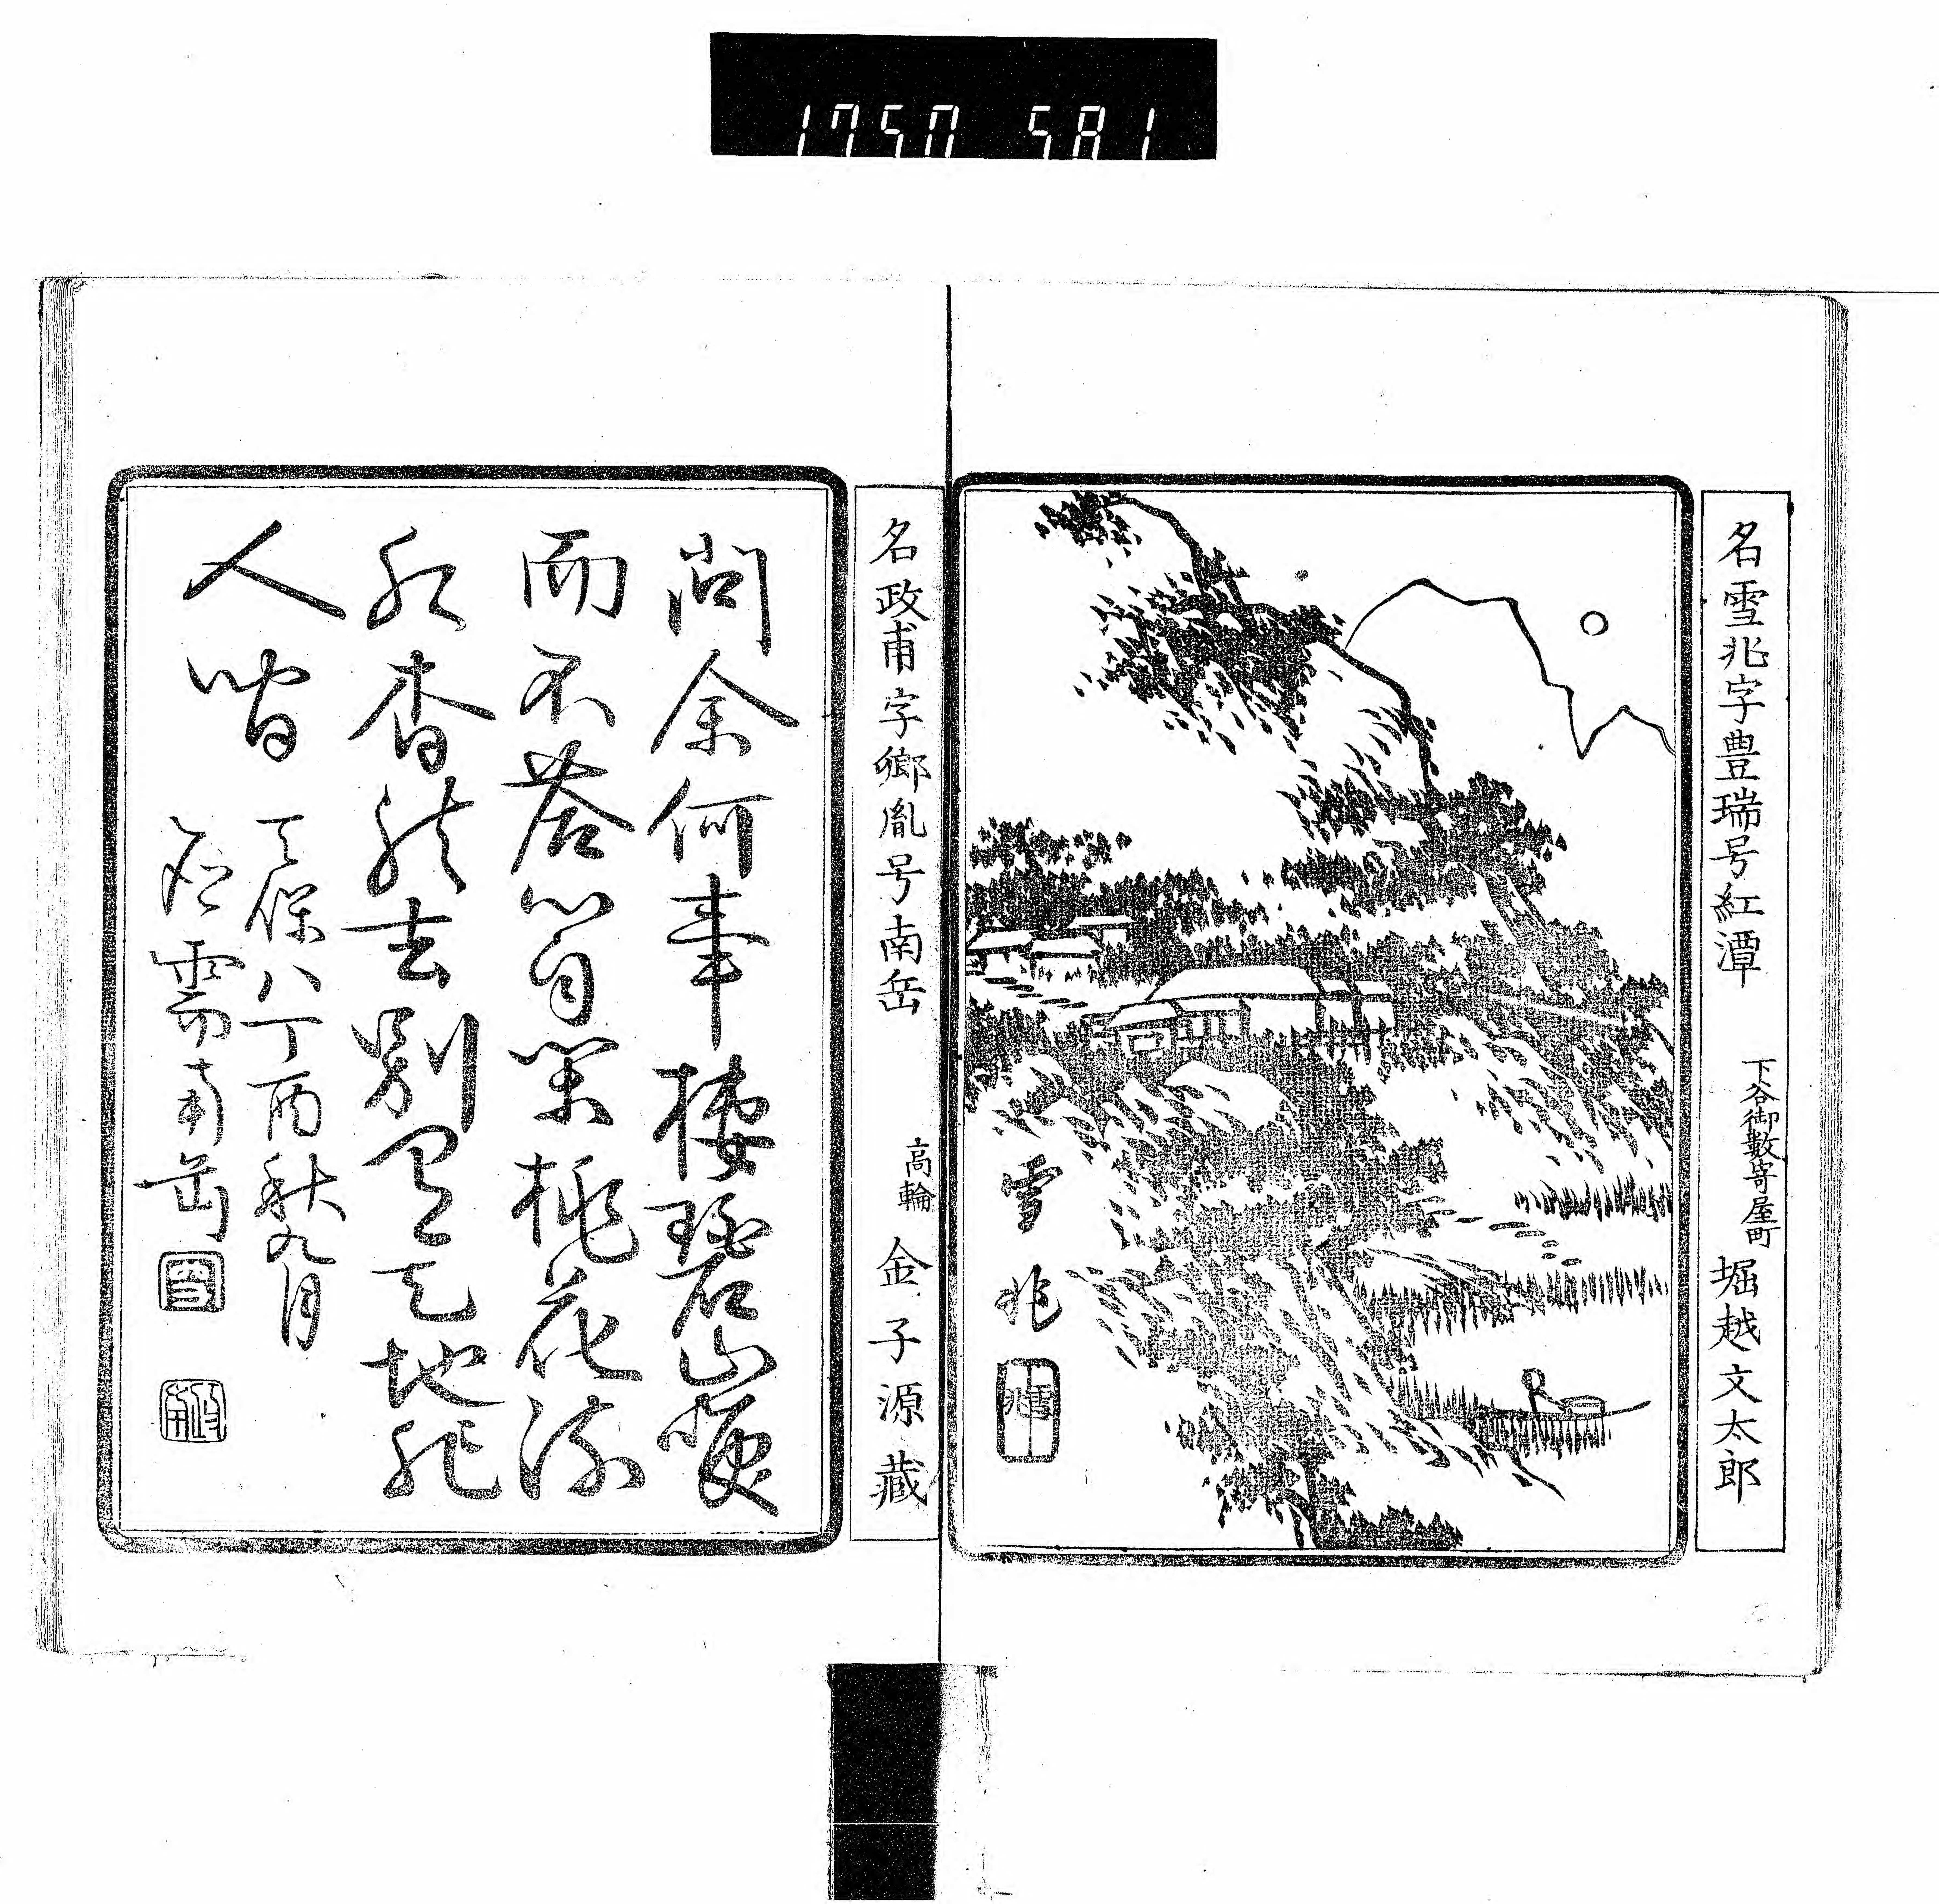 1750 581
名雪兆字豊瑞号紅潭 下谷御數寄屋町 堀越文太郎
雪兆
名政甫字郷胤号南岳 高輪 金子源藏
問余何事棲碧山咲
而不答心自閑桃花流
水杳然去別有天地非
人間
天保八丁酉秋九月
応需南岳